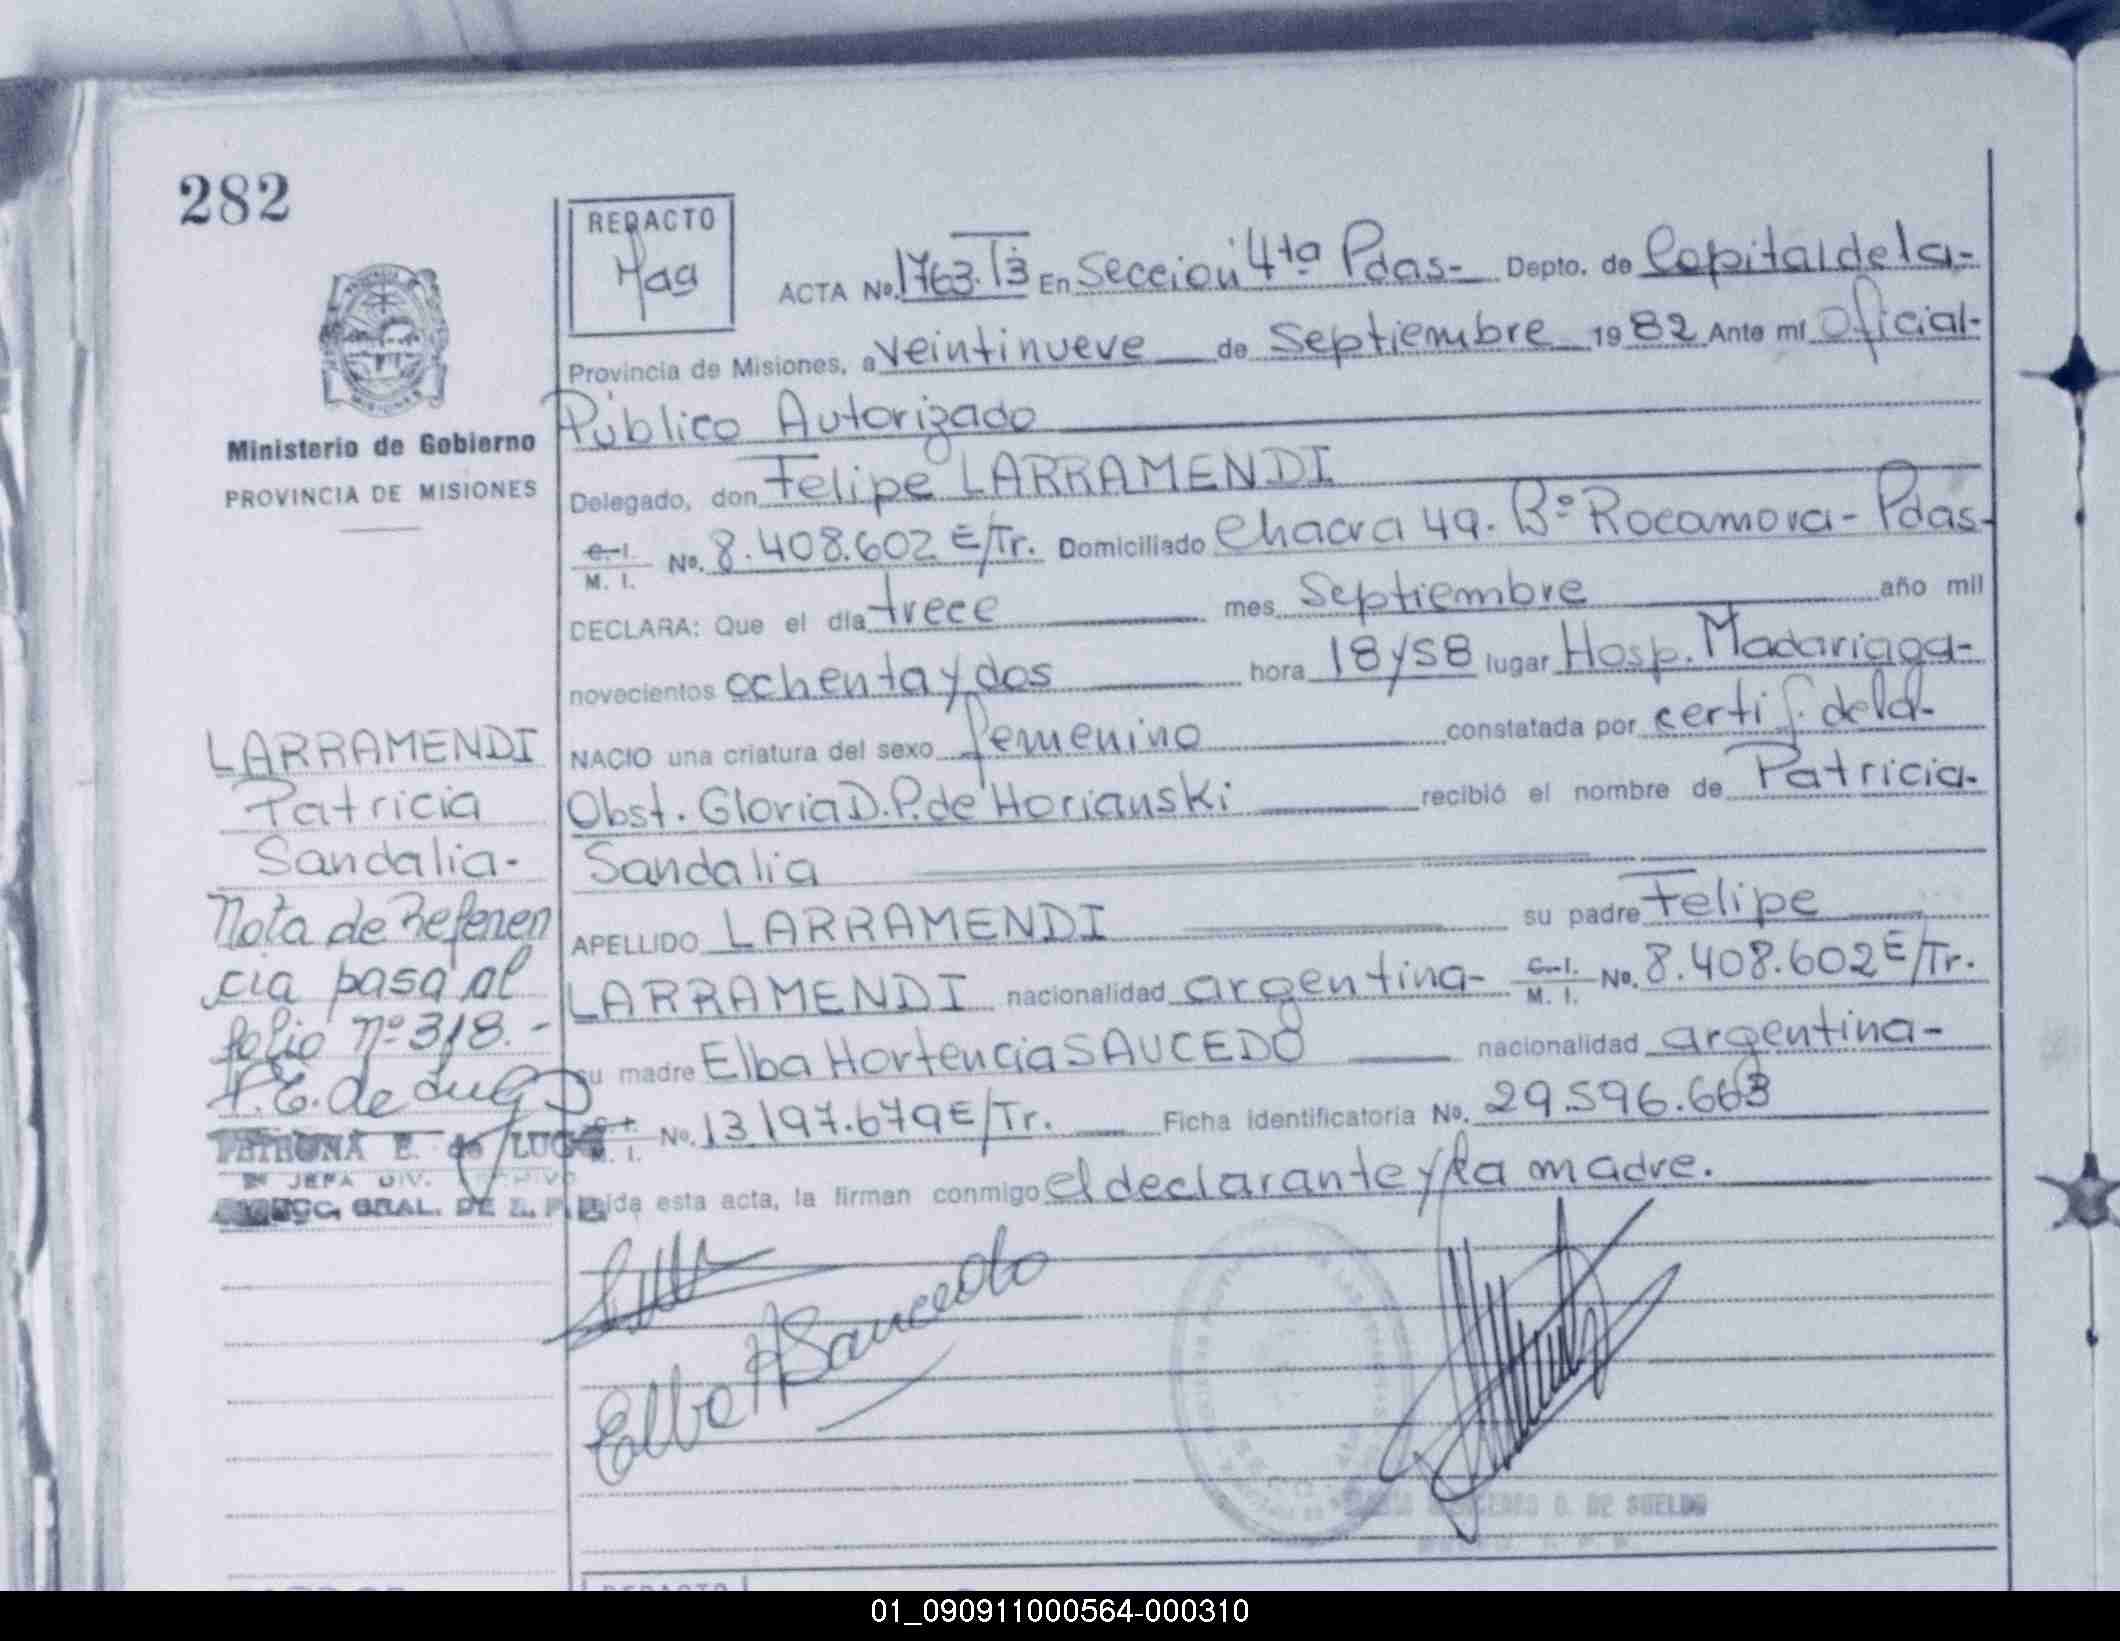 282
REDACTO
Mag
ACTA No. 1763. T3 En Sección 4ta Pdas- Depto. de Capital de la-
Provincia de Misiones, a veintinueve de Septiembre 1982 Ante mí Oficial-
Público Autorizado
Ministerio de Gobierno
PROVINCIA DE MISIONES
Delegado, don Felipe LARRAMENDI
C. I.
M. I. No. 8.408.602 E/Tr. Domiciliado Chacra 49. Bº Rocamora- Pdas-
DECLARA: Que el día trece mes Septiembre año mil
novecientos ochenta y dos hora 18 y 58 lugar Hosp. Madariaga-
NACIO una criatura del sexo femenino constatada por certif. de la
Obst. Gloria D. P. de Horianski recibió el nombre de Patricia-
Sandalia
APELLIDO LARRAMENDI su padre Felipe
LARRAMENDI nacionalidad argentina- C. I. M. I. No. 8.408.602 E/Tr.
su madre Elba Hortencia SAUCEDO nacionalidad argentina-
M. I. No. 13197.679 E/Tr. Ficha identificatoria No. 29.596.663
ida esta acta, la firman conmigo el declarante y la madre.
LARRAMENDI
Patricia
Sandalia-
Nota de Referen
cia pasa al
folio nº 318.-
P. E. de Lugo
PETRONA E. de LUGO
JEFA DIV.
GRAL. DE
Elba H Saucedo
D. DE SUELDO
REDACTO
01_090911000564-000310